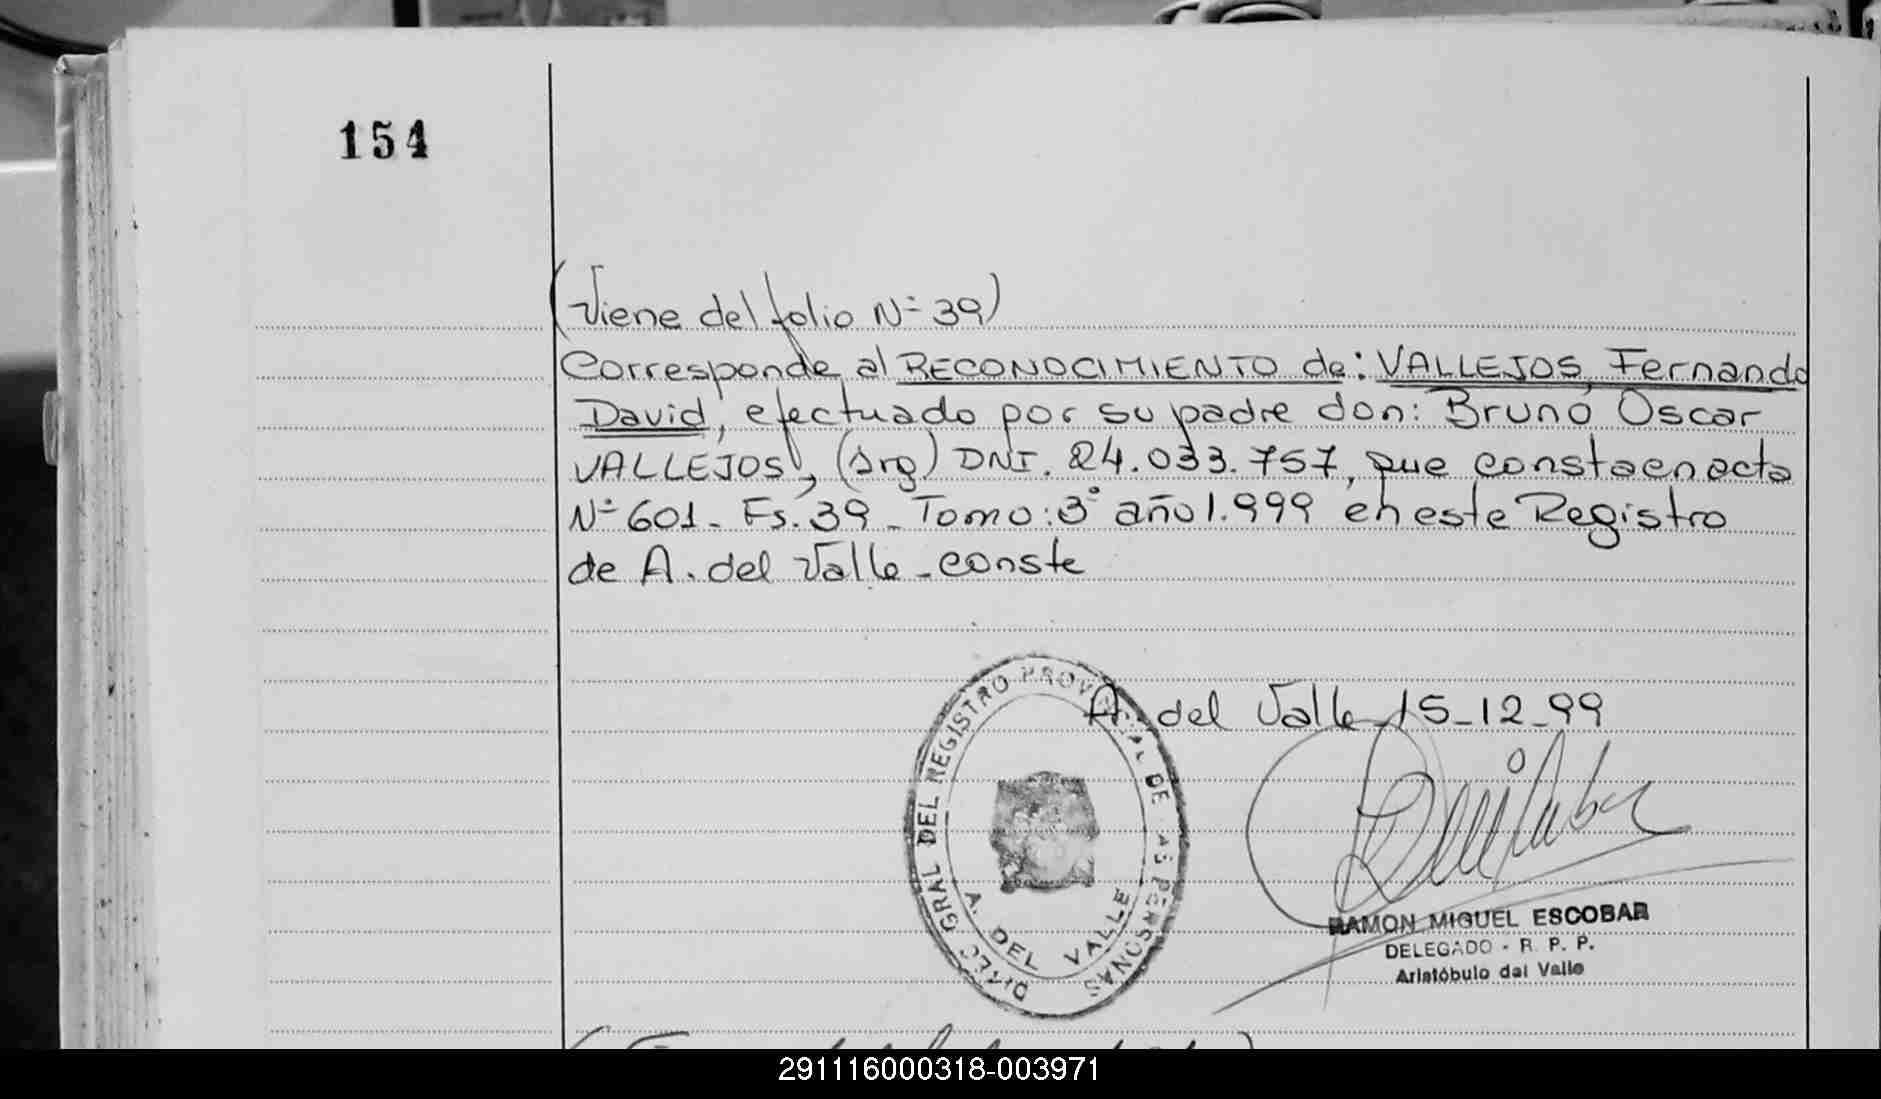 154
(Viene del folio Nº 39)
Corresponde al RECONOCIMIENTO de: VALLEJOS, Fernando
David, efectuado por su padre don: Bruno Oscar
VALLEJOS, (Arg) DNI. 24.033.757, que consta en acta
Nº 601. Fs. 39. Tomo: 3º año 1.999 en este Registro
de A. del Valle. conste
A. del Valle 15-12-99
DIREC GRAL DEL REGISTRO PROVINCIAL DE LAS PERSONAS
A. DEL VALLE
RAMON MIGUEL ESCOBAR
DELEGADO - R. P. P.
Aristóbulo del Valle
291116000318-003971